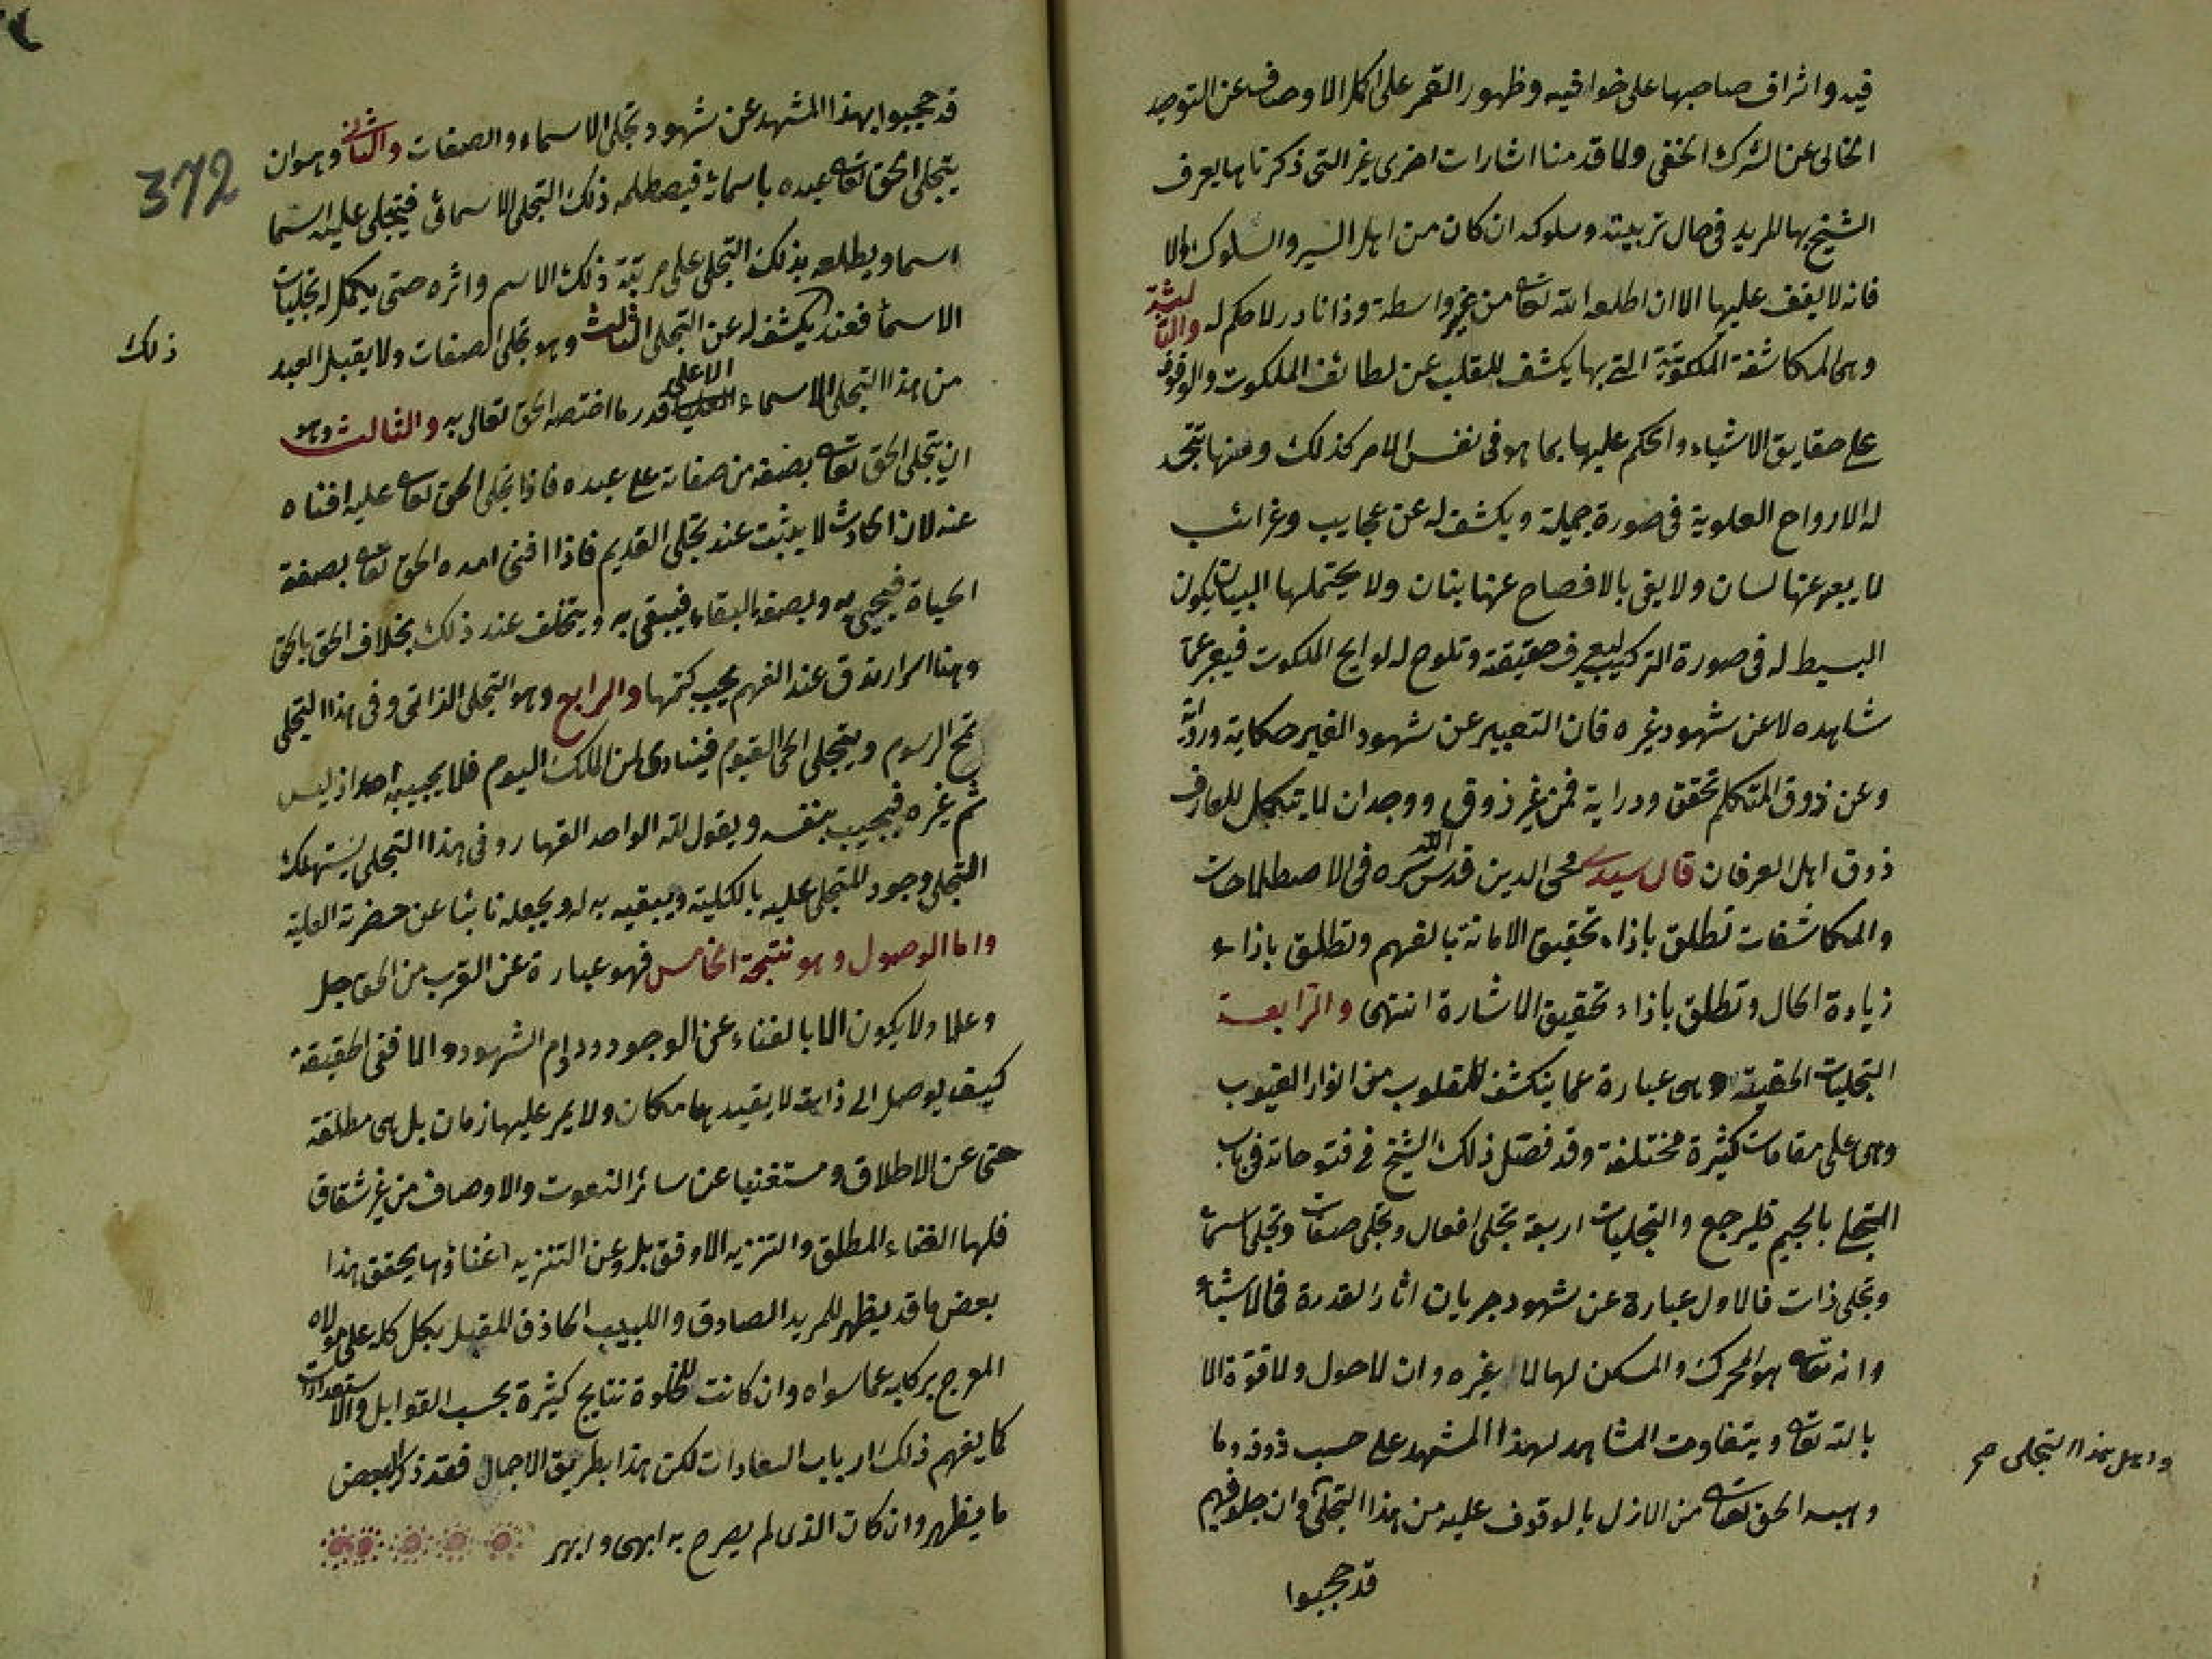 فيه واشراف صاحبها على خوافيه وظهور القمر على اكمل الاوصاف عن التوحيد
الخالى عن الشرك الخفى ولما قدمنا اشارات اخرى غير التى ذكرناها يعرف
الشيخ بها المريد فى حال تربيته وسلوكه ان كان من اهل السير والسلوك والا
فانه لا يقف عليها الا ان اطلعه الله تعالى من غير واسطة وذا نادر لا حكم له والثالثة
وهى المكاشفة التى بها يكشف للقلب عن لطائف الملكوت والوقوف
على حقايق الاشياء والحكم عليها بما هو فى نفس الامر كذلك ومنها تتحد
له الارواح العلوية فى صورة جميلة ويكشف له عن عجايب وغرائب
لا يعبر عنها لسان ولا يفى بالافصاح عنها بنان ولا يحتملها البيان يكون
البسيط له فى صورة التركيب ليعرف حقيقته وتلوح له لوايح الملكوت فيعبر عما
شاهده لا عن شهود غيره فان التعبير عن شهود الغير حكاية ورواية
وعن ذوق المتكلم تحقق ودراية فمن غير ذوق ووجدان لما يتكمل للعارف
ذوق اهل العرفان قال سيدى محى الدين قدس الله سره فى الاصطلاحات
والمكاشفات تطلق باذاء تحقيق الامانة بالفهم وتطلق باذاء
زيادة الحال وتطلق باذاء تحقيق الاشارة انتهى والرابعة
التجليات الحقية وهى عبارة عما ينكشف للقلوب من انوار الغيوب
وهى على مقامات كثيرة مختلفة وقد فصل ذلك الشيخ فى فتوحاته فى باب
التجلى بالجيم فليرجع والتجليات اربعة تجلى افعال وتجلى صفات وتجلى اسما
وتجلى ذات فالاول عبارة عن شهود جريان اثار القدرة فى الاشياء
وانه تعالى هو المحرك والمسكن لها لا غيره وان لا حول ولا قوة الا
بالله تعالى ويتفاوت المشاهد لهذا المشهد على حسب ذوقه وما
وهبه الحق تعالى من الازل بالوقوف عليه من هذا التجلى وان جلو فيهم
واهل هذا التجلى صح
قد حجبوا
372
قد حجبوا بهذا المشهد عن شهود تجلى الاسماء والصفات والثانى وهو ان
يتجلى الحق تعالى عبده باسمائه فيصطلمه ذلك التجلى الاسمائى فيتجلى عليه اسما
اسما ويطلعه بذلك التجلى على مرتبة ذلك الاسم واثره حتى يكمل له تجليات
الاسما فعند يكشف له عن التجلى الثالث وهو تجلى الصفات ولا يقبل العبد
ذلك
من هذا التجلى الاسماء الا على قدر ما اختصه الحق تعالى به والثالث وهو
ان يتجلى الحق تعالى بصفة من صفاته على عبده فاذا تجلى الحق تعالى عليه افناه
عنه لان الحادث لا يثبت عند تجلى القديم فاذا افنى امده الحق تعالى بصفة
الحياة فيحيى به وبصفة البقاء فيبقى به ويتخلف عند ذلك بخلاف الحق بالحق
وهنا اسرار تدق عند الفهم يجب كتمها والرابع وهو التجلى الذاتى وفى هذا التجلى
تمح الرسوم ويتجلى الحى القيوم فينادى لمن الملك اليوم فلا يجيبه احد اذ ليس
ثم غيره فيجيب بنفسه ويقول لله الواحد القهار وفى هذا التجلى يستهلك
المتجلى وجود المتجلى عليه بالكلية ويبقيه به له ويجعله نائبا عن حضرته العلية
واما الوصول وهو نتيجة الخامس فهو عبارة عن القرب من الحق جل
وعلا ولا يكون الا بالفناء عن الوجود ودوام الشهود والا ففى الحقيقة
كيف يوصل الى ذات لا يقيدها مكان ولا يمر عليها زمان بل هى مطلقة
حتى عن الاطلاق ومستغنيا عن سائر النعوت والاوصاف من غير شقاق
فلها الغناء المطلق والتنزيه الاوفق بل وعن التنزيه اغناؤها يحقق هذا
بعض ما قد يظهر للمريد الصادق واللبيب الحاذق المقبل بكل كله على مولاه
المعرج بركابه عما سواه وان كانت للخلوة نتايج كثيرة بحسب القوابل والاستعدادات
كما يفهم ذلك ارباب السعادات لكن هذا بطريق الاجمال فقد ذكر البعض
ما يظهر وان كان الذى لم يصرح به ابهى وابهر